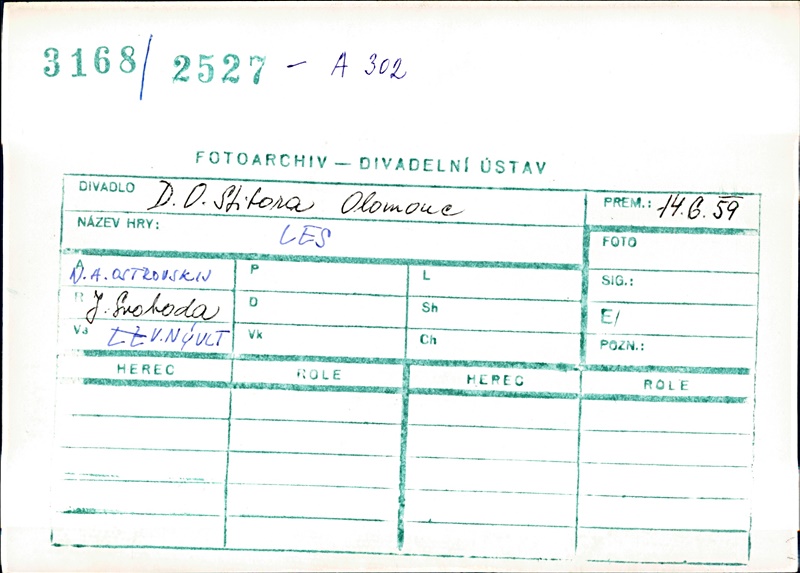 3168/2527 - A 302
FOTOARCHIV — DIVADELNÍ ÚSTAV
DIVADLO D. O. Stibora Olomouc
PREM.: 14.6.59
NÁZEV HRY: LES
FOTO
A N.A. OSTROVSKIJ P L
SIG.:
R J. Svoboda O Sh
E/
Vs V. NÝVLT Vk Ch
POZN.:
HEREC ROLE HEREC ROLE